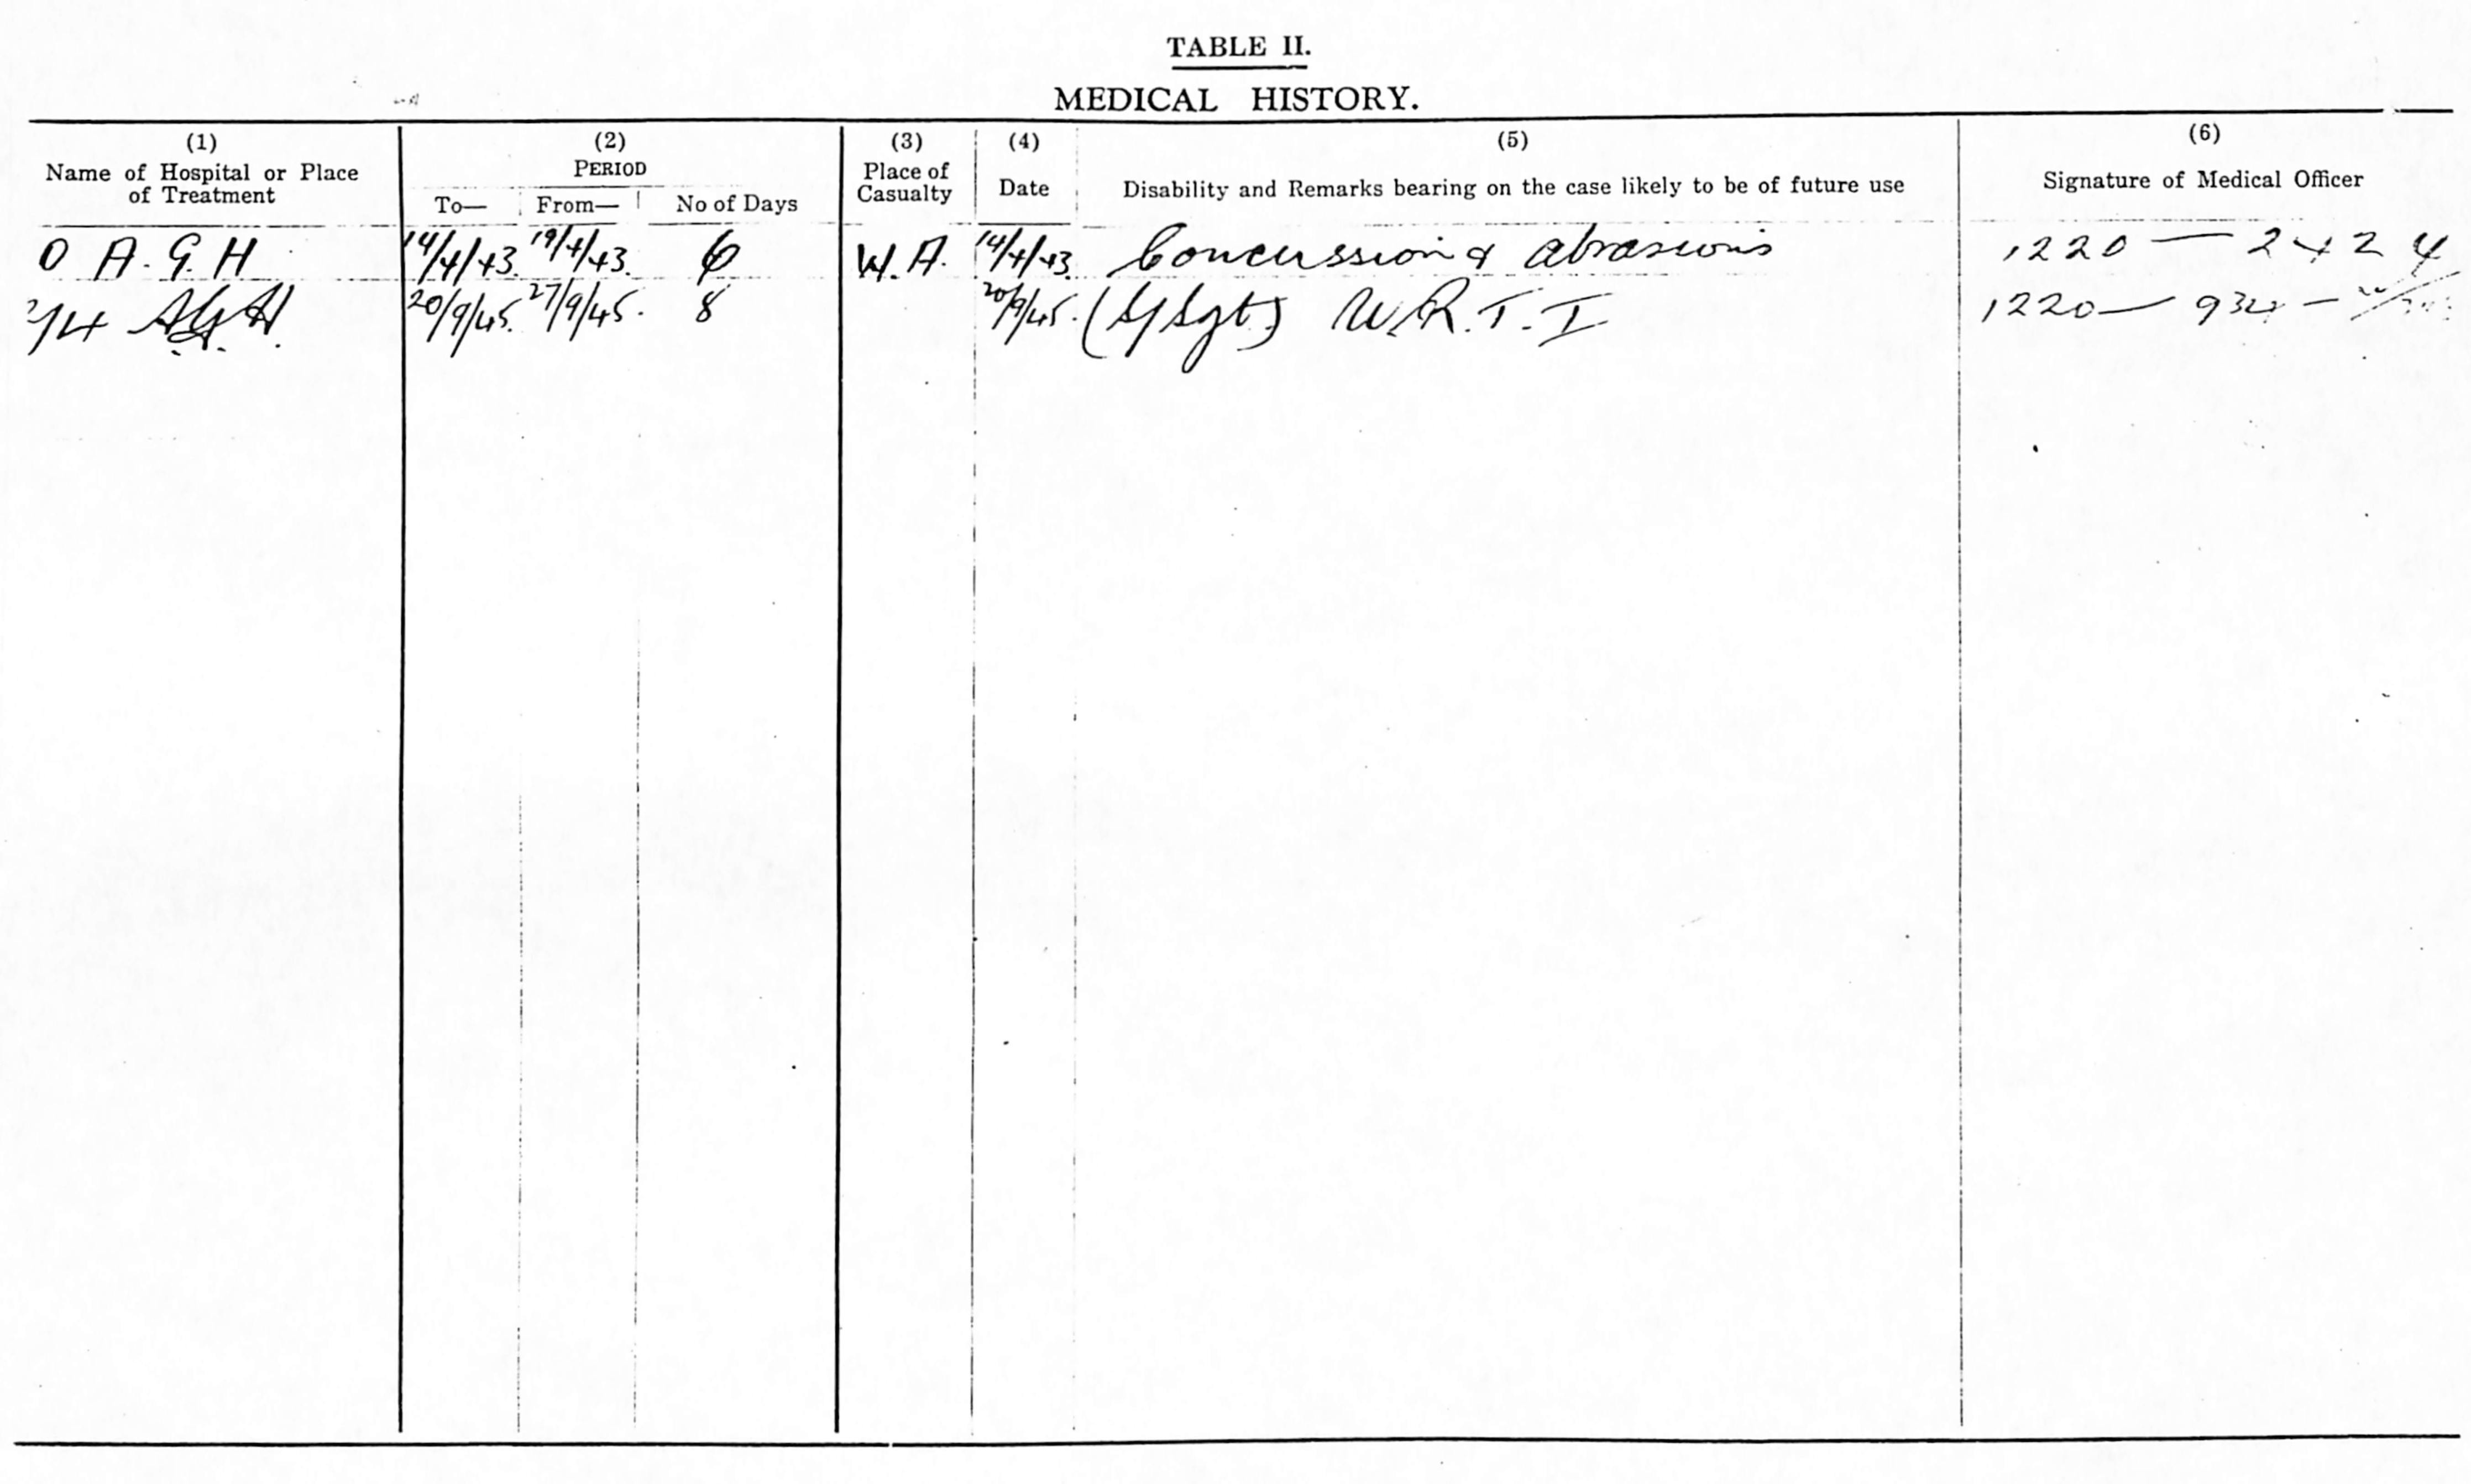 TABLE II.
MEDICAL HISTORY.
(1) (2) (3) (4) (5) (6)
Name of Hospital or Place of Treatment
PERIOD
To— From— No of Days
Place of Casualty
Date
Disability and Remarks bearing on the case likely to be of future use
Signature of Medical Officer
O A. G. H 14/4/43. 19/4/43. 6 W. A. 14/4/43. Concussion & abrasions 1220 — 2424
2/14 A.G.H. 20/9/45. 27/9/45. 8 20/9/45. (S/Sgt) U.R.T.I 1220 —